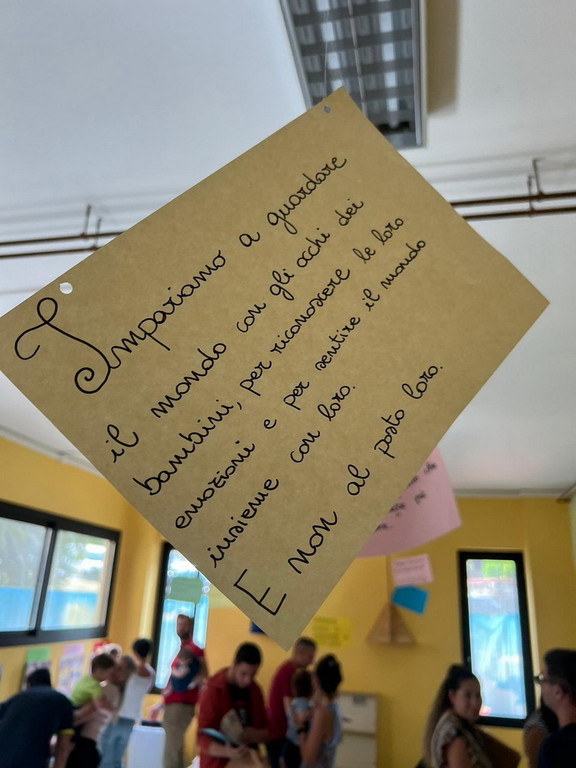 Impariamo a guardare
il mondo con gli occhi dei
bambini, per riconoscere le loro
emozioni e per sentire il mondo
insieme con loro.
E non al posto loro.